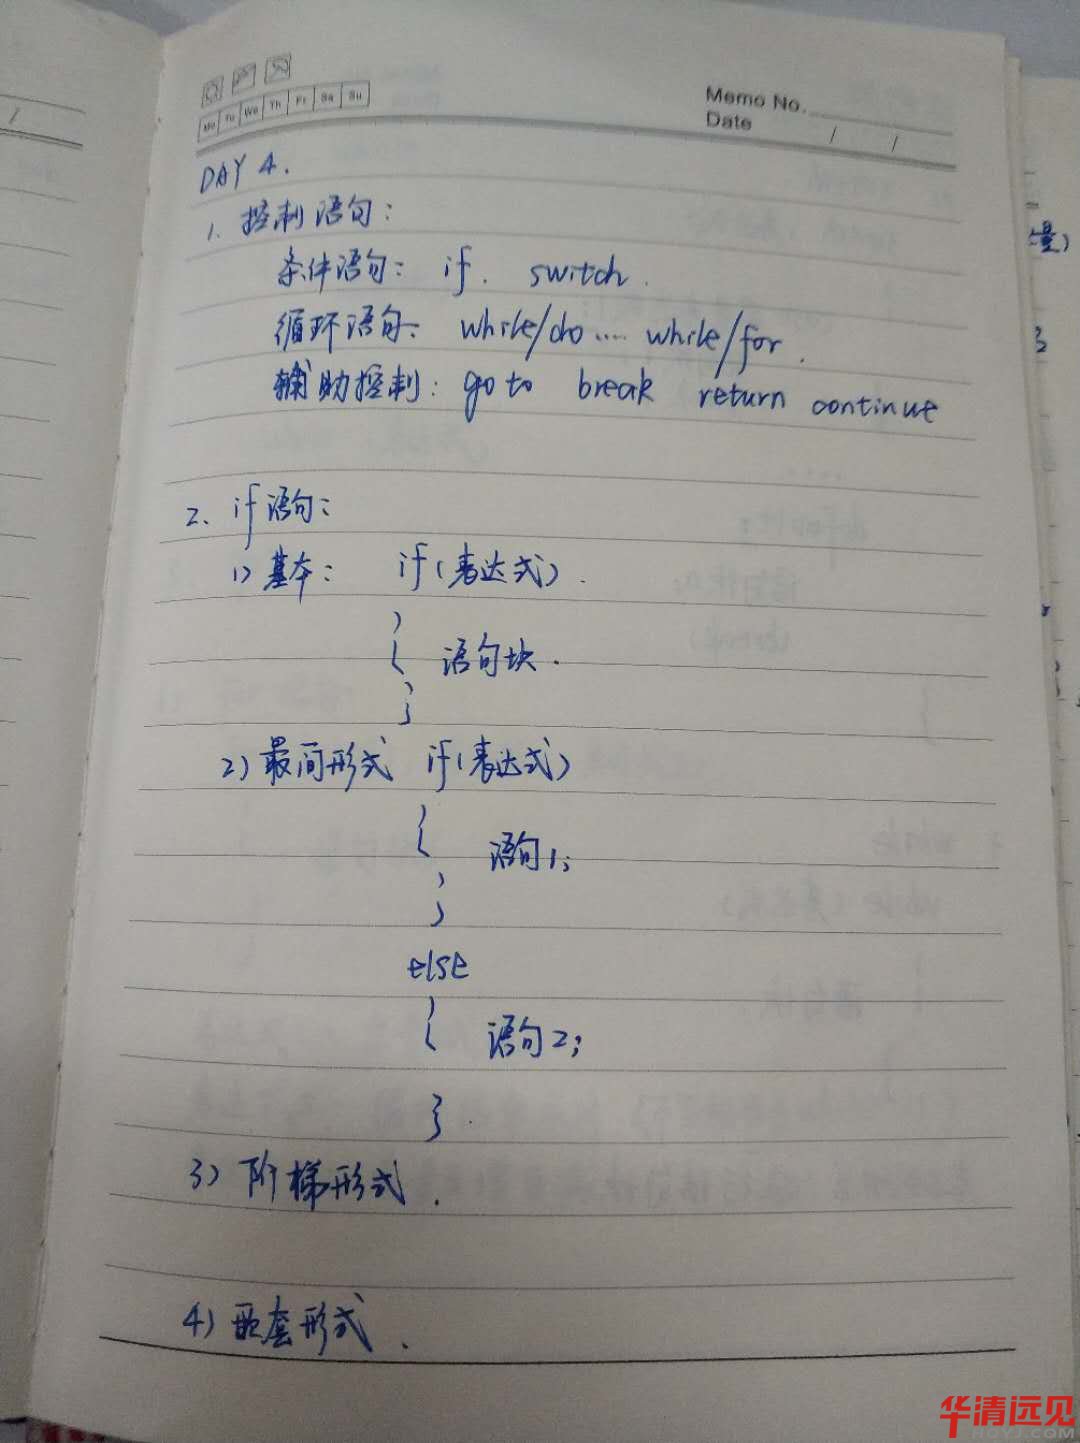 Mo Tu We Th Fr Sa Su
Memo No.
Date / /
DAY 4.
1. 控制语句:
条件语句: if. switch.
循环语句: while/do.... while/for.
辅助控制: go to break return continue
2. if语句:
1) 基本: if(表达式).
{
语句块.
}
2) 最简形式 if(表达式)
{
语句1;
}
else
{
语句2;
}.
3) 阶梯形式.
4) 嵌套形式.
量)
华清远见
HQYJ.COM